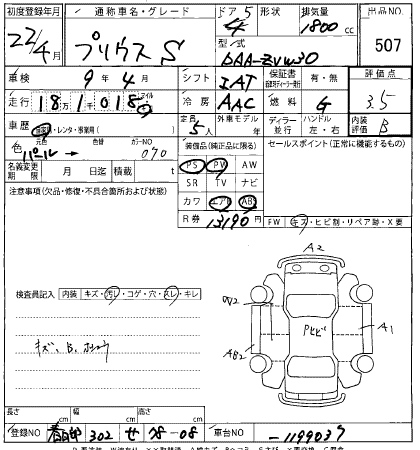 初度登録年月 通称車名・グレード ドア 5 形状 排気量 出品NO.
22/4月 プリウス S 1800cc 507
型式 DAA-ZVW30
車検 9年4月 シフト IAT 保証書 有・無 評価点
走行 18万1018 km マイル 冷房 AAC 燃料 G 3.5
車歴 自家用・レンタ・事業用( ) 定員 5人 外車モデル 年 ディーラー 並行 ハンドル 左・右 内装評価 B
色 パール→ 色替 カラーNO 070 装備品(純正品に限る) セールスポイント(正常に機能するもの)
名義変更期限 月 日迄 積載 t PS PW AW
注意事項(欠品・修復・不具合箇所および状態) SR TV ナビ
カワ エアB ABS
R券 13190円 FW キズ・ヒビ割・リペア跡・X要
A2
検査員記入 内装・キズ・汚レ・コゲ・穴・スレ・キレ
W2 Pヒビ A1
キズ、B、ホシュウ AB2
長さ cm 幅 cm 高さ cm
登録NO 春日部 302 せ 78-08 車台NO -1199037